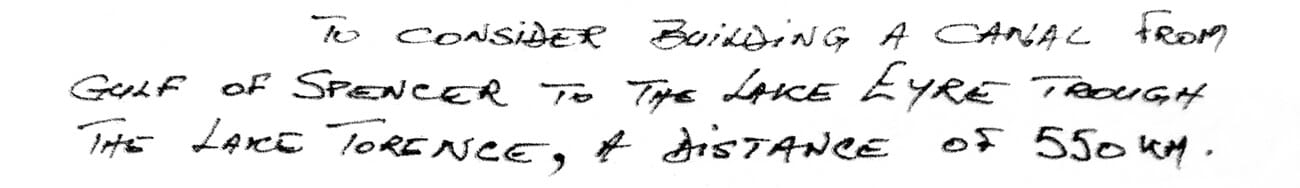 TO CONSIDER BUILDING A CANAL FROM
GULF OF SPENCER TO THE LAKE EYRE TROUGH
THE LAKE TORENCE, A DISTANCE OF 550 KM.